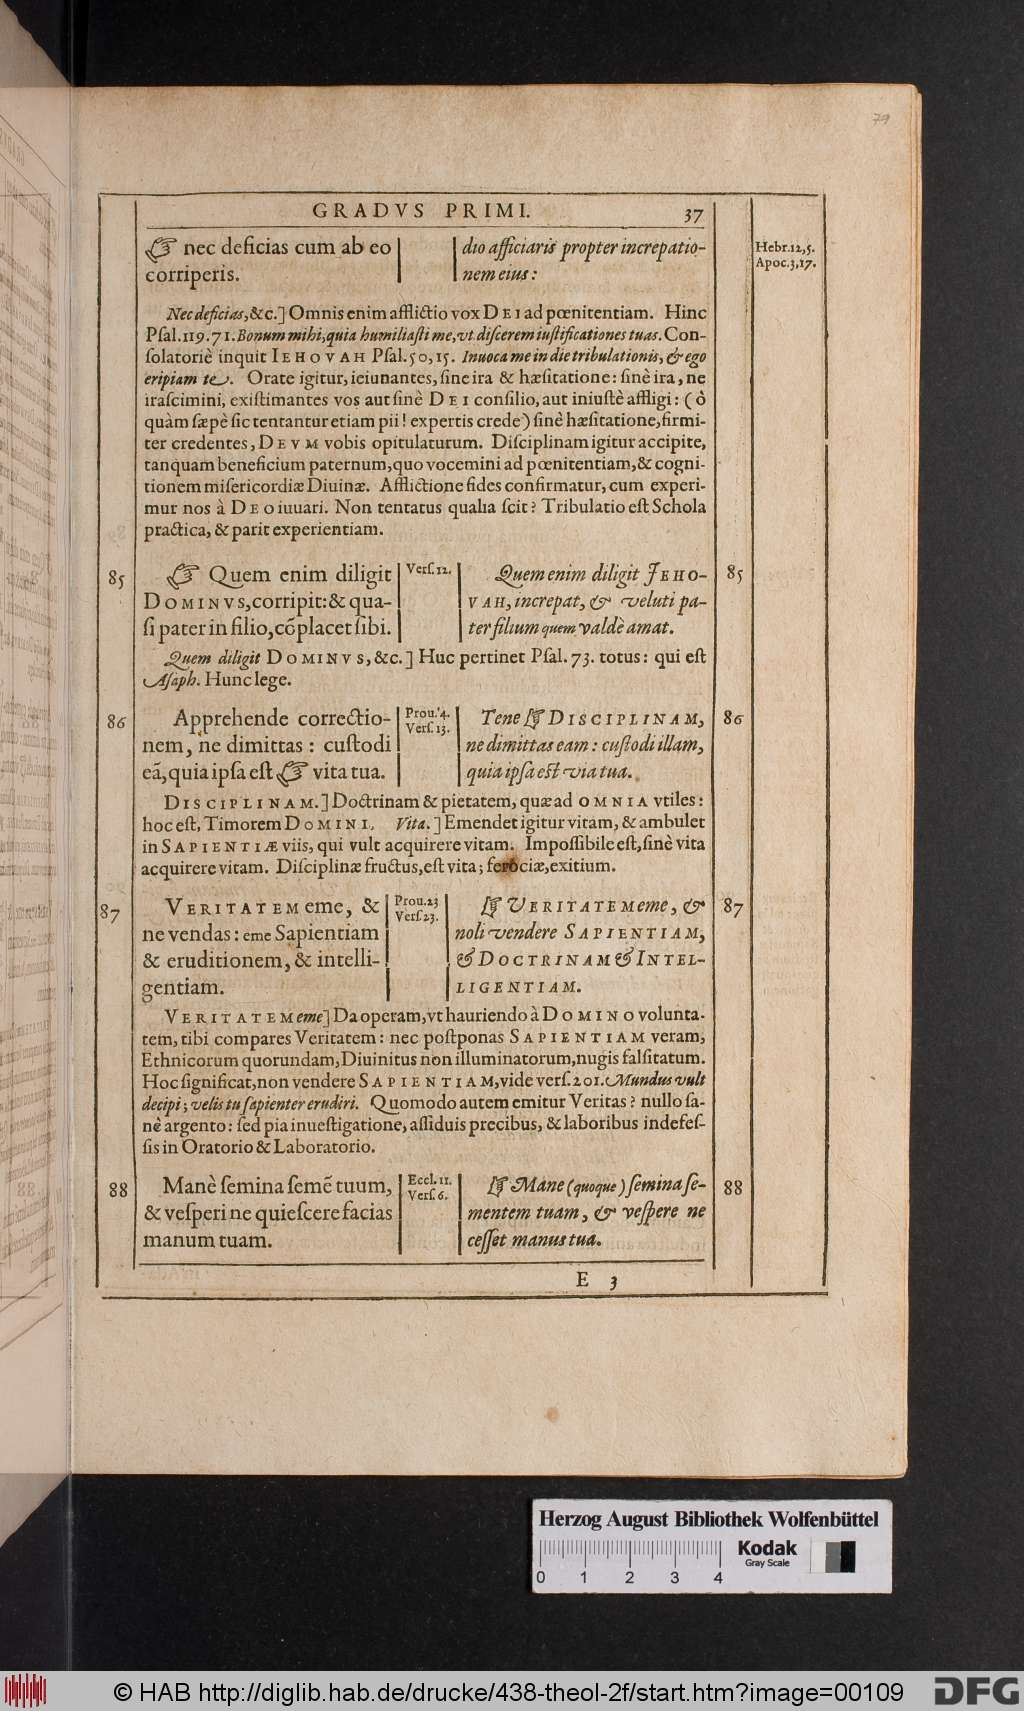 79
GRADVS PRIMI. 37
☞ nec deficias cum ab eo
corriperis.
dio afficiaris propter increpatio-
nem eius:
Hebr.12,5.
Apoc.3,17.
Nec deficias,&c.] Omnis enim afflictio vox DEI ad pœnitentiam. Hinc
Psal.119.71. Bonum mihi,quia humiliasti me,vt discerem iustificationes tuas. Con-
solatoriè inquit IEHOVAH Psal.50,15. Inuoca me in die tribulationis, & ego
eripiam te. Orate igitur, ieiunantes, sine ira & hæsitatione: sinè ira, ne
irascimini, existimantes vos aut sinè DEI consilio, aut iniustè affligi: (ô
quàm sæpè sic tentantur etiam pii! expertis crede) sinè hæsitatione, firmi-
ter credentes, DEVM vobis opitulaturum. Disciplinam igitur accipite,
tanquam beneficium paternum, quo vocemini ad pœnitentiam, & cogni-
tionem misericordiæ Diuinæ. Afflictione fides confirmatur, cum experi-
mur nos à DEO iuuari. Non tentatus qualia scit? Tribulatio est Schola
practica, & parit experientiam.
85 ☞ Quem enim diligit
DOMINVS,corripit:& qua-
si pater in filio,cõplacet sibi.
Vers.12.
Quem enim diligit JEHO- 85
VAH, increpat, & veluti pa-
ter filium quem valdè amat.
Quem diligit DOMINVS, &c.] Huc pertinet Psal. 73. totus: qui est
Asaph. Hunc lege.
86 Apprehende correctio-
nem, ne dimittas : custodi
eã, quia ipsa est ☞ vita tua.
Prou.4.
Vers.13.
Tene ☞ DISCIPLINAM, 86
ne dimittas eam : custodi illam,
quia ipsa est via tua.
DISCIPLINAM.] Doctrinam & pietatem, quæ ad OMNIA vtiles:
hoc est, Timorem DOMINI. Vita.] Emendet igitur vitam, & ambulet
in SAPIENTIÆ viis, qui vult acquirere vitam. Impossibile est, sinè vita
acquirere vitam. Disciplinæ fructus, est vita; ferociæ, exitium.
87 VERITATEM eme, &
ne vendas: eme Sapientiam
& eruditionem, & intelli-
gentiam.
Prou.23
Vers.23.
☞ VERITATEM eme, & 87
noli vendere SAPIENTIAM,
& DOCTRINAM & INTEL-
LIGENTIAM.
VERITATEM eme] Da operam, vt hauriendo à DOMINO volunta-
tem, tibi compares Veritatem: nec postponas SAPIENTIAM veram,
Ethnicorum quorundam, Diuinitus non illuminatorum, nugis falsitatum.
Hoc significat, non vendere SAPIENTIAM, vide vers.201. Mundus vult
decipi; velis tu sapienter erudiri. Quomodo autem emitur Veritas? nullo sa-
nè argento: sed pia inuestigatione, assiduis precibus, & laboribus indefes-
sis in Oratorio & Laboratorio.
88 Manè semina semẽ tuum,
& vesperi ne quiescere facias
manum tuam.
Eccl.11.
Vers.6.
☞ Mane (quoque) semina se- 88
mentem tuam, & vespere ne
cesset manus tua.
E 3
Herzog August Bibliothek Wolfenbüttel
Kodak
Gray Scale
0 1 2 3 4
© HAB http://diglib.hab.de/drucke/438-theol-2f/start.htm?image=00109
DFG